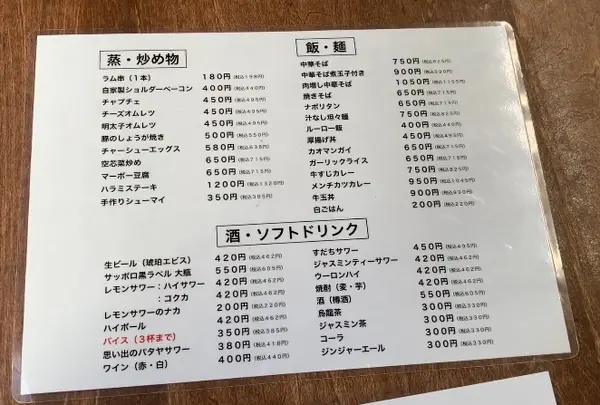 蒸・炒め物
ラム串（1本） 180円（税込198円）
自家製ショルダーベーコン 400円（税込440円）
チャプチェ 450円（税込495円）
チーズオムレツ 450円（税込495円）
明太子オムレツ 450円（税込495円）
豚のしょうが焼き 500円（税込550円）
チャーシューエッグス 580円（税込638円）
空芯菜炒め 650円（税込715円）
マーボー豆腐 650円（税込715円）
ハラミステーキ 1200円（税込1320円）
手作りシューマイ 350円（税込385円）
飯・麺
中華そば 750円（税込825円）
中華そば煮玉子付き 900円（税込990円）
肉増し中華そば 1050円（税込1155円）
焼きそば 650円（税込715円）
ナポリタン 650円（税込715円）
汁なし坦々麺 750円（税込825円）
ルーロー飯 400円（税込440円）
厚揚げ丼 450円（税込495円）
カオマンガイ 650円（税込715円）
ガーリックライス 650円（税込715円）
牛すじカレー 750円（税込825円）
メンチカツカレー 950円（税込1045円）
牛玉丼 900円
白ごはん 200円（税込220円）
酒・ソフトドリンク
生ビール（琥珀エビス） 420円（税込462円）
サッポロ黒ラベル 大瓶 550円（税込605円）
レモンサワー：ハイサワー 420円（税込462円）
：コクカ 420円（税込462円）
レモンサワーのナカ 200円（税込220円）
ハイボール 420円（税込462円）
バイス（3杯まで） 350円（税込385円）
思い出のパタヤサワー 380円（税込418円）
ワイン（赤・白） 400円（税込440円）
すだちサワー 450円（税込495円）
ジャスミンティーサワー 420円（税込462円）
ウーロンハイ 420円（税込462円）
焼酎（麦・芋） 420円（税込462円）
酒（樽酒） 550円（税込605円）
烏龍茶 300円（税込330円）
ジャスミン茶 300円（税込330円）
コーラ 300円（税込330円）
ジンジャーエール 300円（税込330円）